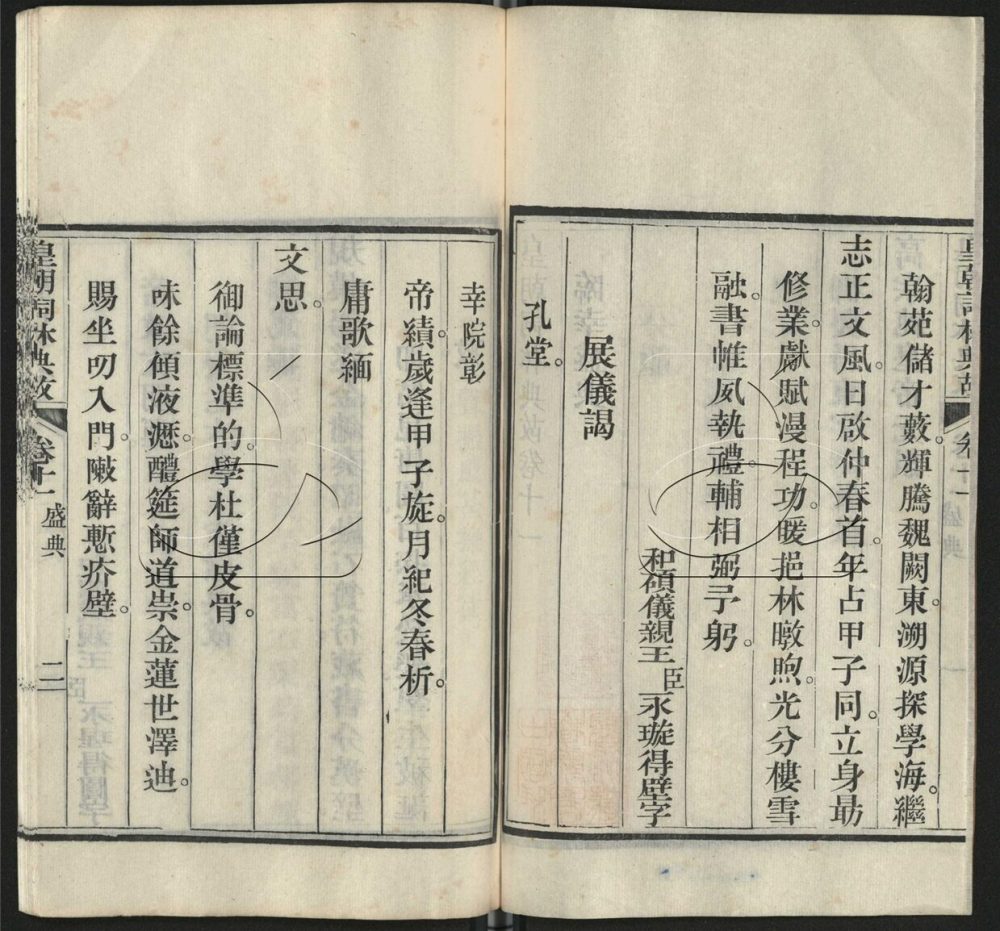 翰苑儲才藪。輝騰魏闕東。溯源探學海。繼
志正文風。日啟仲春首。年占甲子同。立身最
修業。獻賦漫程功。暖挹林暾煦。光分樓雪
融。書帷夙執禮。輔相弼予躬。
和碩儀親王臣永璇得壁字
展儀謁
孔堂。
幸院彰
帝績。歲逢甲子旋。月紀冬春析。
賡歌緬
文思。
御論標準的。學杜僅皮骨。
味餘傾液瀝。醴筵師道崇。金蓮世澤迪。
賜坐叨入門。陳辭慙疥壁。
皇朝詞林典故 卷十一 盛典 二
皇朝詞林典故 卷十一 盛典 一